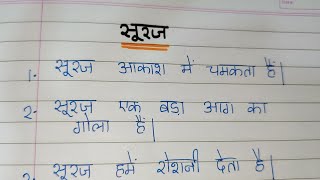 सूरज
1- सूरज आकाश में चमकता हैं|
2- सूरज एक बड़ा आग का
गोला हैं|
सूरज हमें रोशनी देता है|